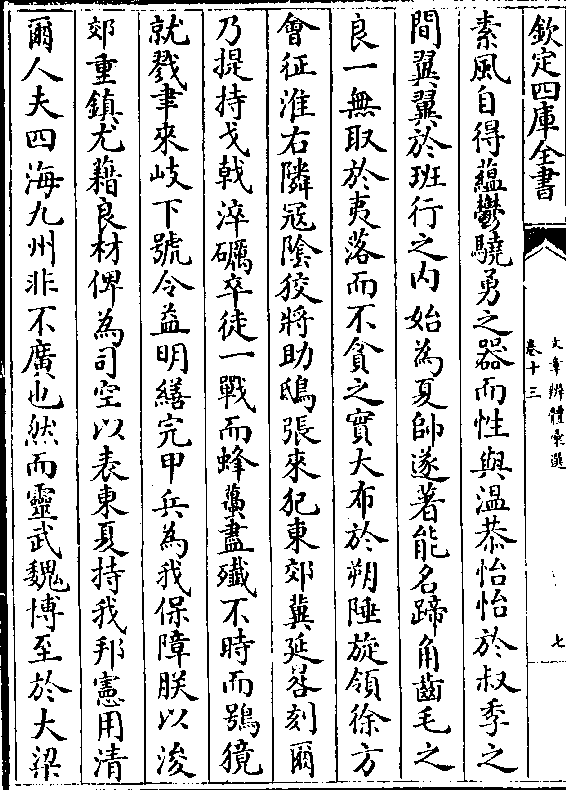 欽定四庫全書
文章辨體彙選
卷十三
七
素風自得蘊鬱驍勇之器而性與温恭怡怡於叔季之
間翼翼於班行之内始為夏帥遂著能名蹄角齒毛之
良一無取於夷落而不貪之實大布於朔陲旋領徐方
會征淮右隣冦陰狡將助鴟張來犯東郊冀延晷刻爾
乃提持戈㦸淬礪卒徒一戰而蜂蠆盡殲不時而鴞獍
就戮聿來岐下號令益明繕完甲兵為我保障朕以浚
郊重鎮尤藉良材俾為司空以表東夏持我邦憲用清
爾人夫四海九州非不廣也然而靈武魏博至於大梁